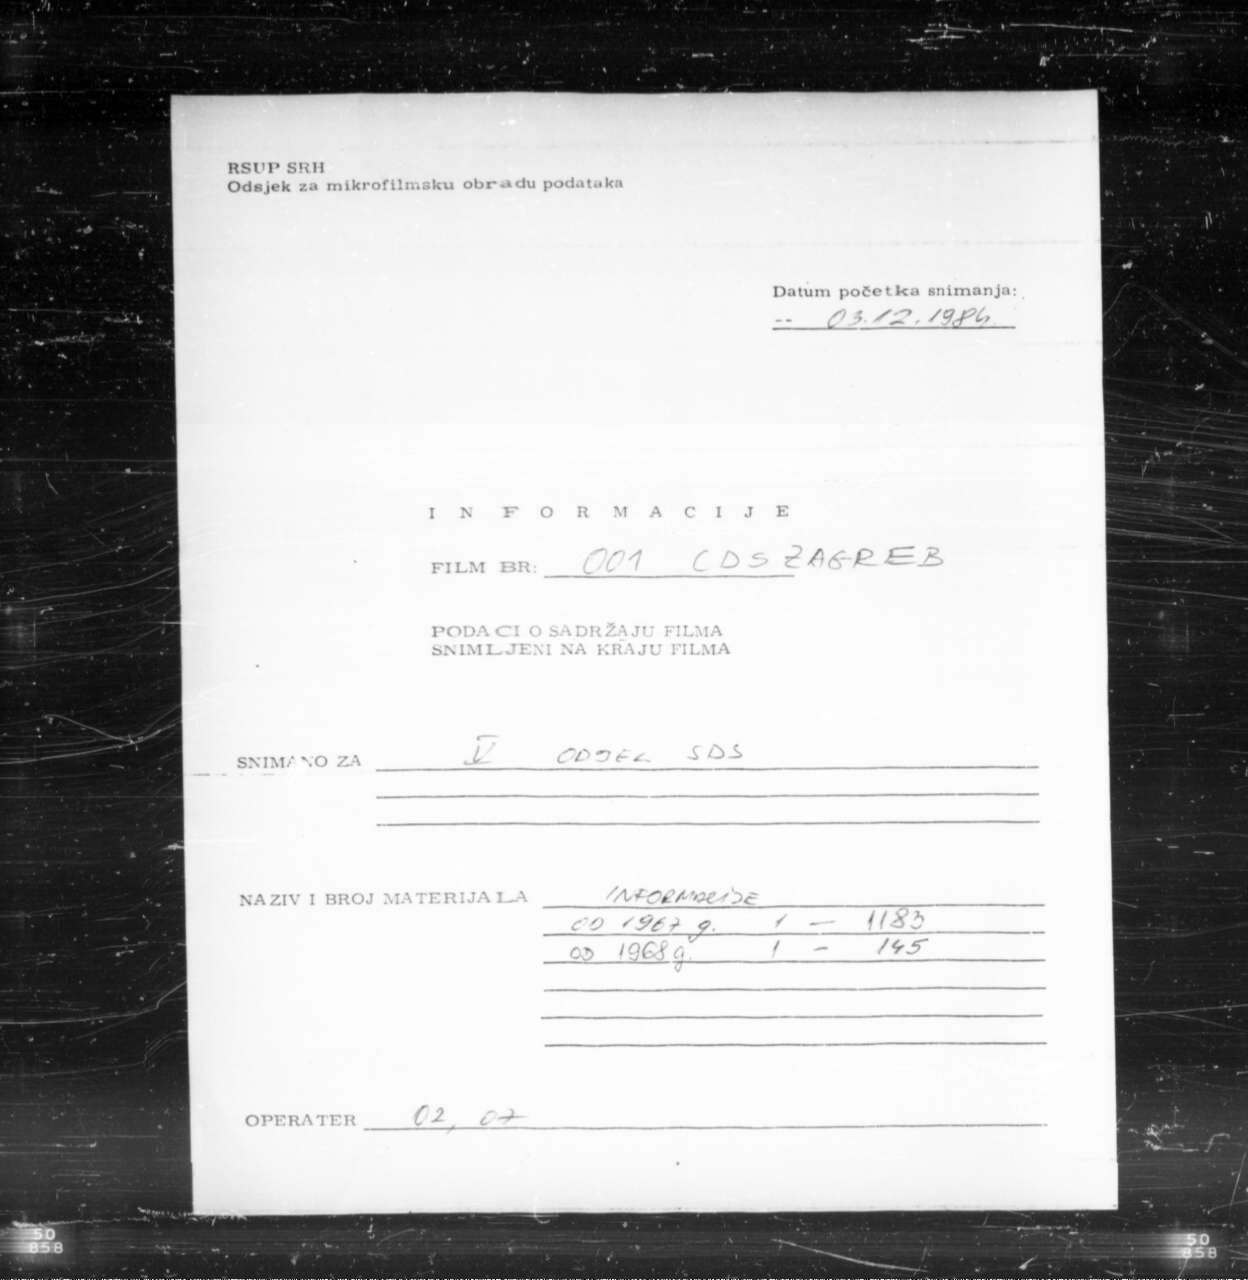 RSUP SRH
Odsjek za mikrofilmsku obradu podataka
Datum početka snimanja:
-- 03.12.1984.
I N F O R M A C I J E
FILM BR: 001 CDS ZAGREB
PODACI O SADRŽAJU FILMA
SNIMLJENI NA KRAJU FILMA
SNIMANO ZA V ODJEL SDS
NAZIV I BROJ MATERIJALA INFORMACIJE
OD 1967 g. 1 - 1183
OD 1968 g. 1 - 145
OPERATER 02, 07
50 50
858 858